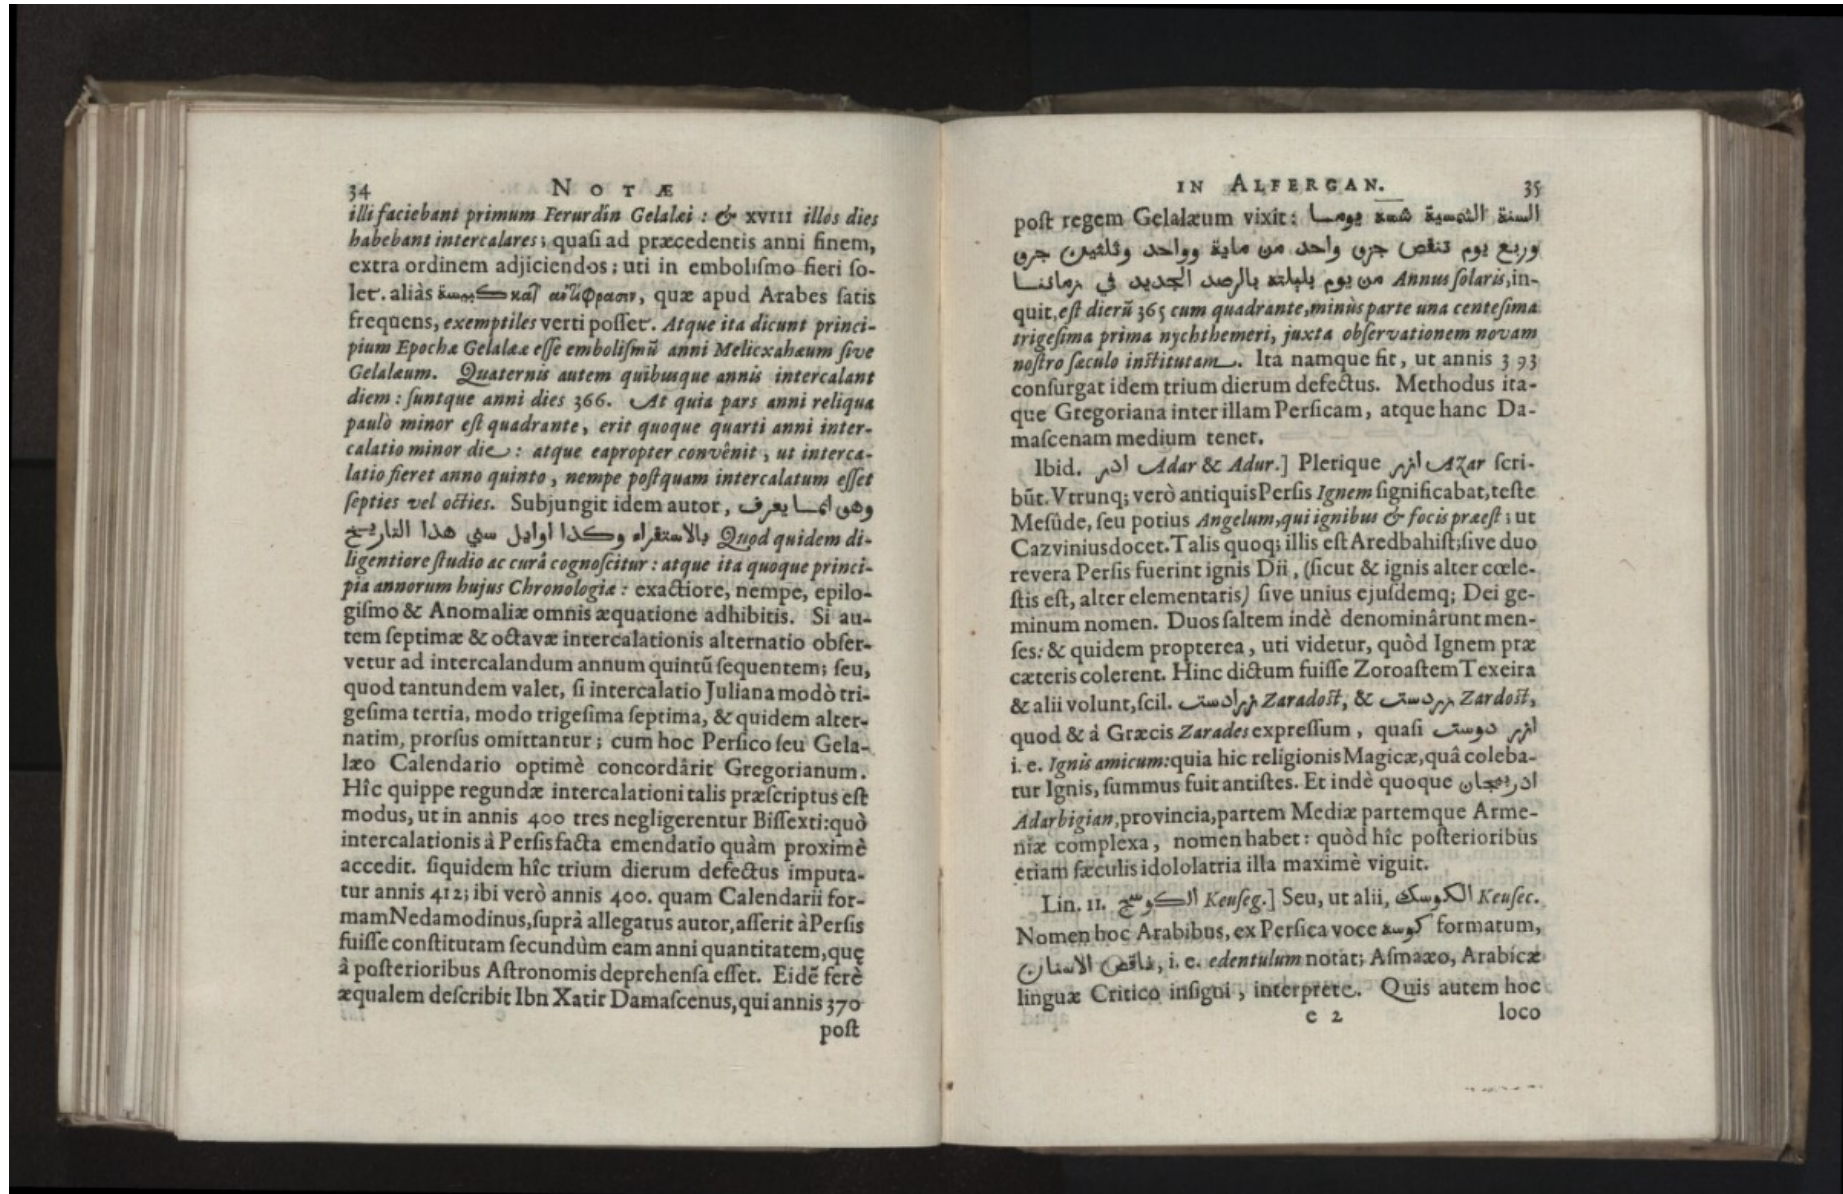 34 NOTÆ
illi faciebant primum Ferurdîn Gelalæi : & XVIII illos dies
habebant intercalares; quasi ad præcedentis anni finem,
extra ordinem adjiciendos; uti in embolismo fieri so-
let. aliàs كبيسة quæ apud Arabes satis
frequens, exemptiles verti posset. Atque ita dicunt princi-
pium Epochæ Gelalææ esse embolismũ anni Melicxahæum sive
Gelalæum. Quaternis autem quibusque annis intercalant
diem : suntque anni dies 366. At quia pars anni reliqua
paulò minor est quadrante, erit quoque quarti anni inter-
calatio minor die : atque eapropter convênit, ut interca-
latio fieret anno quinto, nempe postquam intercalatum esset
septies vel octies. Subjungit idem autor, وهو انما يعرف
بالاستقراء وكذا اوايل سني هذا التاريخ Quod quidem di-
ligentiore studio ac curâ cognoscitur : atque ita quoque princi-
pia annorum hujus Chronologiæ : exactiore, nempe, epilo-
gismo & Anomaliæ omnis æquatione adhibitis. Si au-
tem septimæ & octavæ intercalationis alternatio obser-
vetur ad intercalandum annum quintũ sequentem; seu,
quod tantundem valet, si intercalatio Juliana modò tri-
gesima tertia, modo trigesima septima, & quidem alter-
natim, prorsus omittantur; cum hoc Persico seu Gela-
læo Calendario optimè concordârit Gregorianum.
Hîc quippe regundæ intercalationi talis præscriptus est
modus, ut in annis 400 tres negligerentur Bissexti: quò
intercalationis à Persis facta emendatio quàm proximè
accedit. siquidem hîc trium dierum defectus imputa-
tur annis 412; ibi verò annis 400. quam Calendarii for-
mam Nedamodinus, suprà allegatus autor, asserit à Persis
fuisse constitutam secundùm eam anni quantitatem, quę
à posterioribus Astronomis deprehensa esset. Eidẽ ferè
æqualem describit Ibn Xatir Damascenus, qui annis 370
post
IN ALFERGAN. 35
post regem Gelalæum vixit: السنة الشمسية شسه يوما
وربع يوم تنقص جزو واحد من ماية وواحد وثلثين جزو
من يوم بليلته بالرصد الجديد في زماننا Annus solaris, in-
quit, est dierũ 365 cum quadrante, minùs parte una centesima
trigesima prima nychthemeri, juxta observationem novam
nostro sæculo institutam. Ita namque fit, ut annis 393
consurgat idem trium dierum defectus. Methodus ita-
que Gregoriana inter illam Persicam, atque hanc Da-
mascenam medium tenet.
Ibid. ادر Adar & Adur.] Plerique ازر Azar scri-
bũt. Vtrunq; verò antiquis Persis Ignem significabat, teste
Mesûde, seu potius Angelum, qui ignibus & focis præest; ut
Cazvinius docet. Talis quoq; illis est Aredbahist; sive duo
revera Persis fuerint ignis Dii, (sicut & ignis alter cœle-
stis est, alter elementaris) sive unius ejusdemq; Dei ge-
minum nomen. Duos saltem indè denominârunt men-
ses: & quidem propterea, uti videtur, quòd Ignem præ
cæteris colerent. Hinc dictum fuisse Zoroastem Texeira
& alii volunt, scil. زرادست Zaradost, & زردست Zardost,
quod & à Græcis Zarades expressum, quasi ازر دوست
i. e. Ignis amicum: quia hic religionis Magicæ, quâ coleba-
tur Ignis, summus fuit antistes. Et indè quoque ادربيجان
Adarbigian, provincia, partem Mediæ partemque Arme-
niæ complexa, nomen habet: quòd hîc posterioribus
etiam sæculis idololatria illa maximè viguit.
Lin. 11. الكوسج Keuseg.] Seu, ut alii, الكوسك Keusec.
Nomen hoc Arabibus, ex Persica voce كوسه formatum,
ناقص الاسنان, i. e. edentulum notat; Asmaæo, Arabicæ
linguæ Critico insigni, interprete. Quis autem hoc
e 2 loco